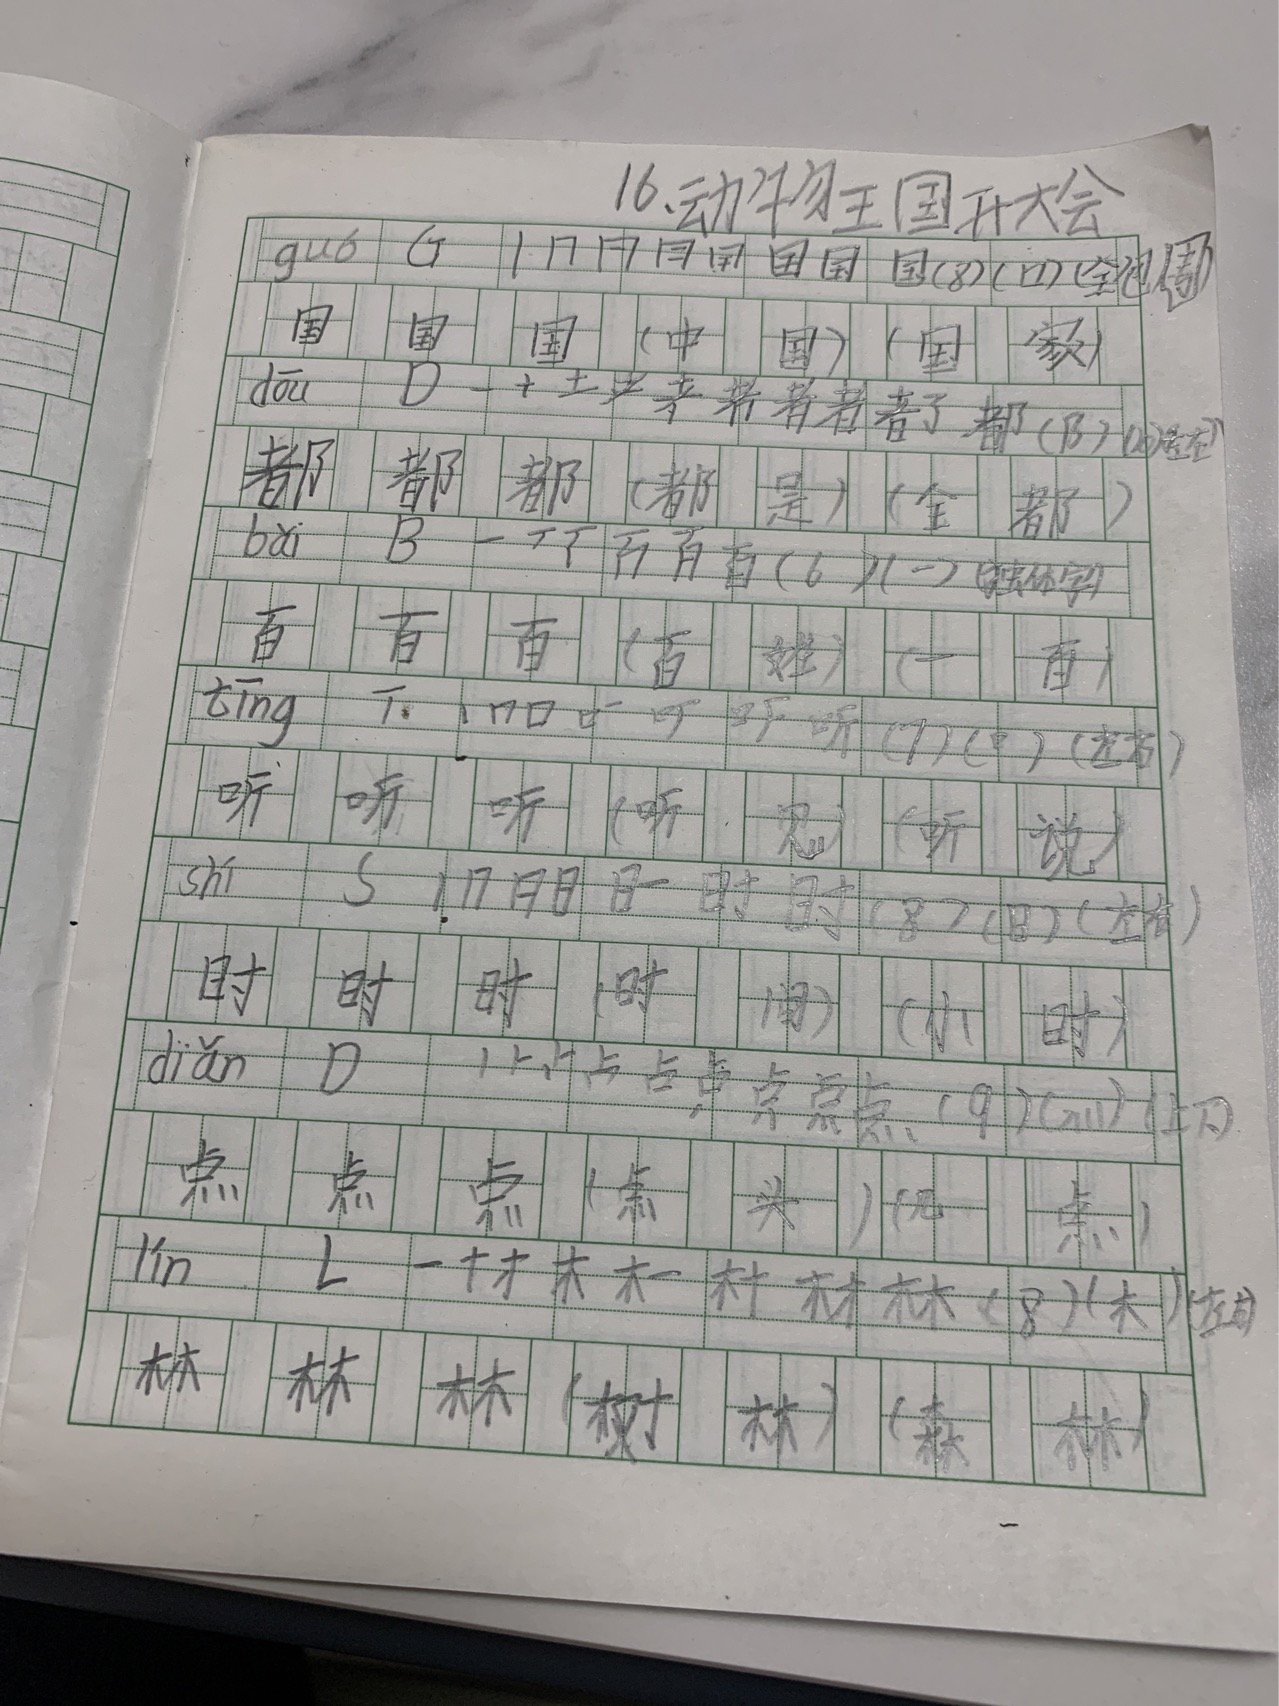 16.动物王国开大会
guó G 丨 冂 冂 国 国 国 国 国(8)(口)(全包围)
国 国 国 (中 国) (国 家)
dōu D 一 十 土 耂 者 者 者 者 都(阝) 左右)
都 都 都 (都 是) (全 都)
bǎi B 一 丆 丆 百 百 百(6)(一)(独体字)
百 百 百 (百 姓) (一 百)
tīng T. 丨 冂 口 听 听 听 听 (7)(口)(左右)
听 听 听 (听 见) (听 说)
shí S 丨 冂 日 日 日一 时 时 (8)(日)(左右)
时 时 时 (时 间) (小 时)
diǎn D 丨 卜 占 占 占 点 点 点 点 (9)(灬)(上下)
点 点 点 (点 头) (几 点)
lín L 一 十 才 木 木一 村 林 林 (8)(木)(左右)
林 林 林 (树 林) (森 林)